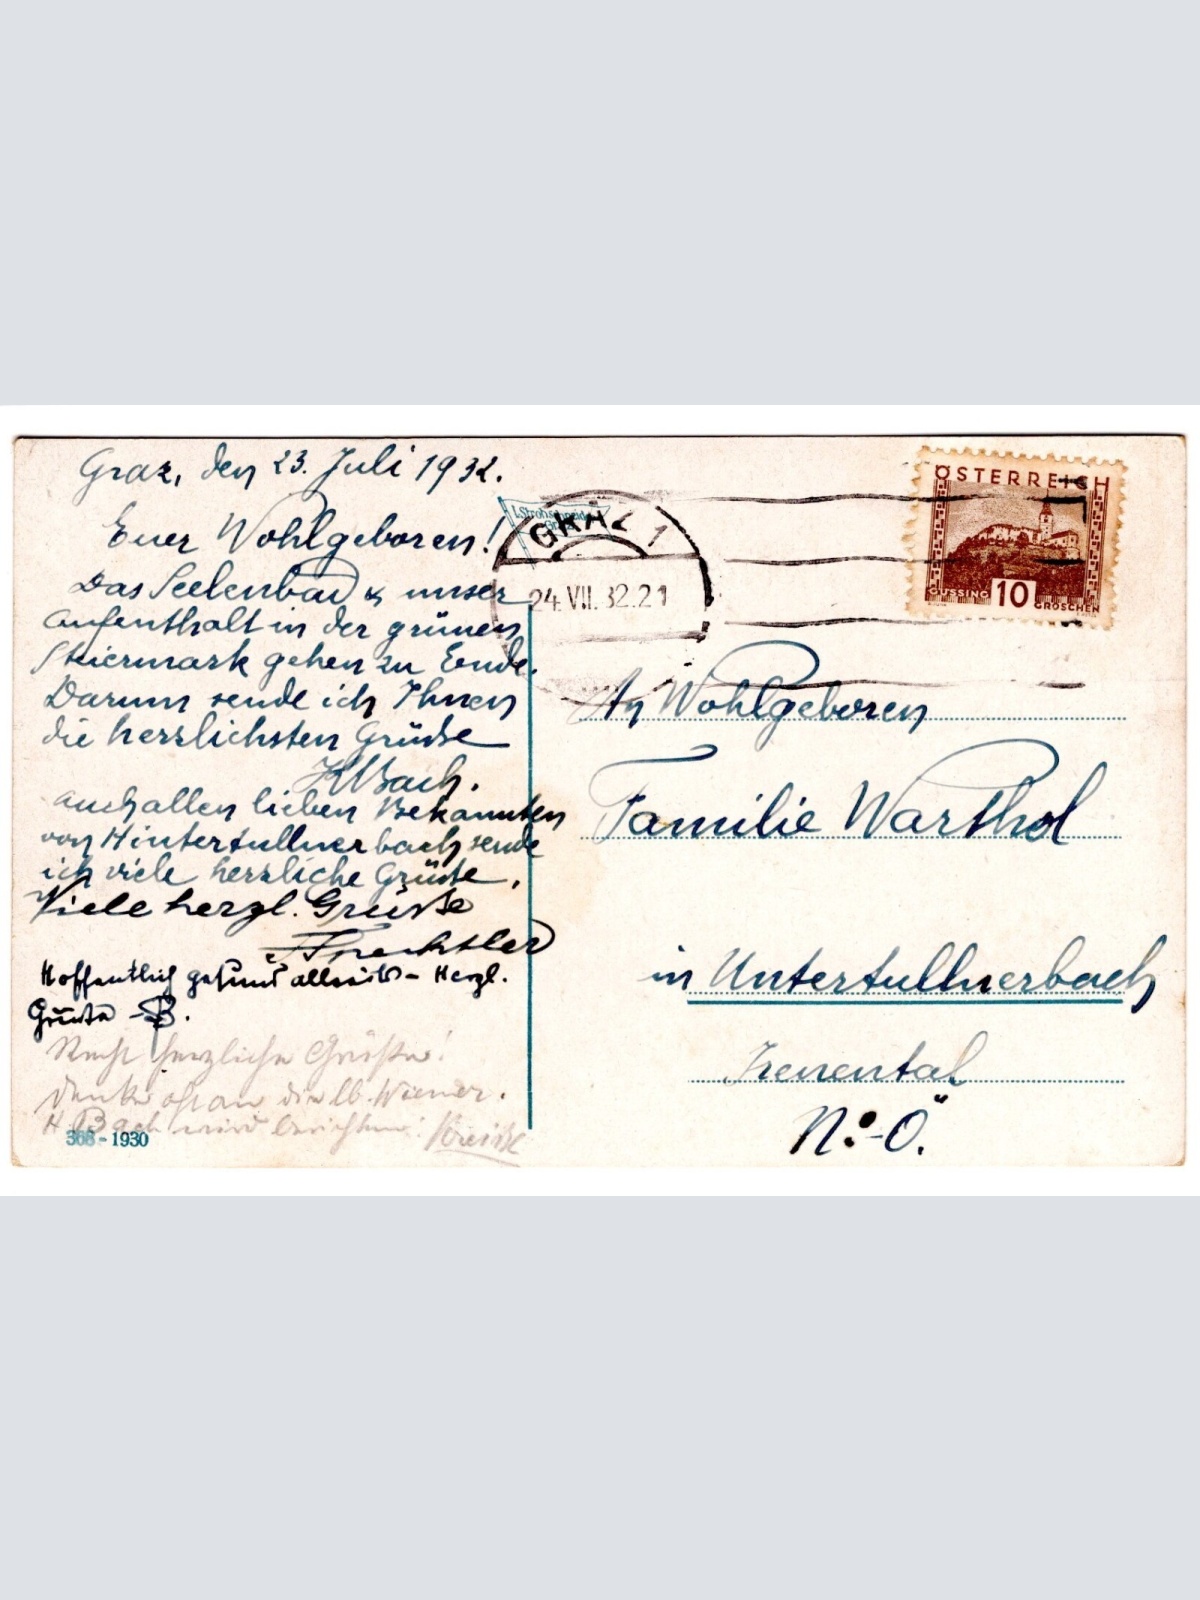 Graz, den 23. Juli 1932.
Euer Wohlgeboren!
Das Seelenbad & unser
Aufenthalt in der grünen
Steiermark gehen zu Ende.
Darum sende ich Ihnen
die herzlichsten Grüße
Bach.
auch allen lieben Bekannten
von Hintertullnerbach sende
ich viele herzliche Grüße,
Viele herzl. Grüsse
Hoffentlich gesund allseits - Herzl.
Grüße - B.
Recht herzliche Grüße!
Denke oft an die lb. Wiener.
H. Bach wird berichten.
368 - 1930
I. Strohschneider
Graz
GRAZ 1
24.VII.32.21
ÖSTERREICH
GÜSSING 10 GROSCHEN
An Wohlgeboren
Familie Warthol
in Untertullnerbach
Irenental
N.-Ö.